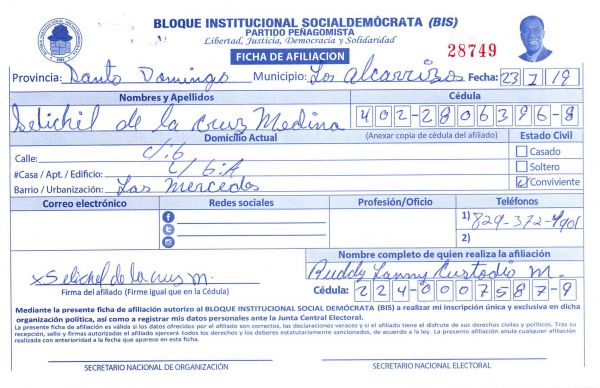 BLOQUE INSTITUCIONAL SOCIALDEMÓCRATA (BIS)
PARTIDO PEÑAGOMISTA
Libertad, Justicia, Democracia y Solidaridad
FICHA DE AFILIACION
28749
Provincia: Santo Domingo Municipio: Los Alcarrizos Fecha: 23 7 19
Nombres y Apellidos Cédula
Selichel de la Cruz Medina 402-2806396-8
Domicilio Actual (Anexar copia de cédula del afiliado) Estado Civil
Calle: c/:6
#Casa / Apt. / Edificio: 6:A
Barrio / Urbanización: Las Mercedes
Casado
Soltero
Conviviente
Correo electrónico Redes sociales Profesión/Oficio Teléfonos
1) 829-372-4901
2)
Nombre completo de quien realiza la afiliación
x Selichel de la cruz m. Ruddy Lanny Custodio M.
Firma del afiliado (Firme igual que en la Cédula) Cédula: 224-0007587-9
Mediante la presente ficha de afiliación autorizo al BLOQUE INSTITUCIONAL SOCIAL DEMÓCRATA (BIS) a realizar mi inscripción única y exclusiva en dicha
organización política, así como a registrar mis datos personales ante la Junta Central Electoral.
La presente ficha de afiliación es válida si los datos ofrecidos por el afiliado son correctos, las declaraciones veraces y si el afiliado tiene el disfrute de sus derechos civiles y políticos. Tras su
recepción, sello y firmas autorizadas el afiliado ejercerá todos los derechos y los deberes estatutariamente sancionados, de acuerdo a la ley. La presente afiliación anula cualquier afiliación
realizada con anterioridad a la fecha que aparece en esta ficha.
SECRETARIO NACIONAL DE ORGANIZACIÓN SECRETARIO NACIONAL ELECTORAL